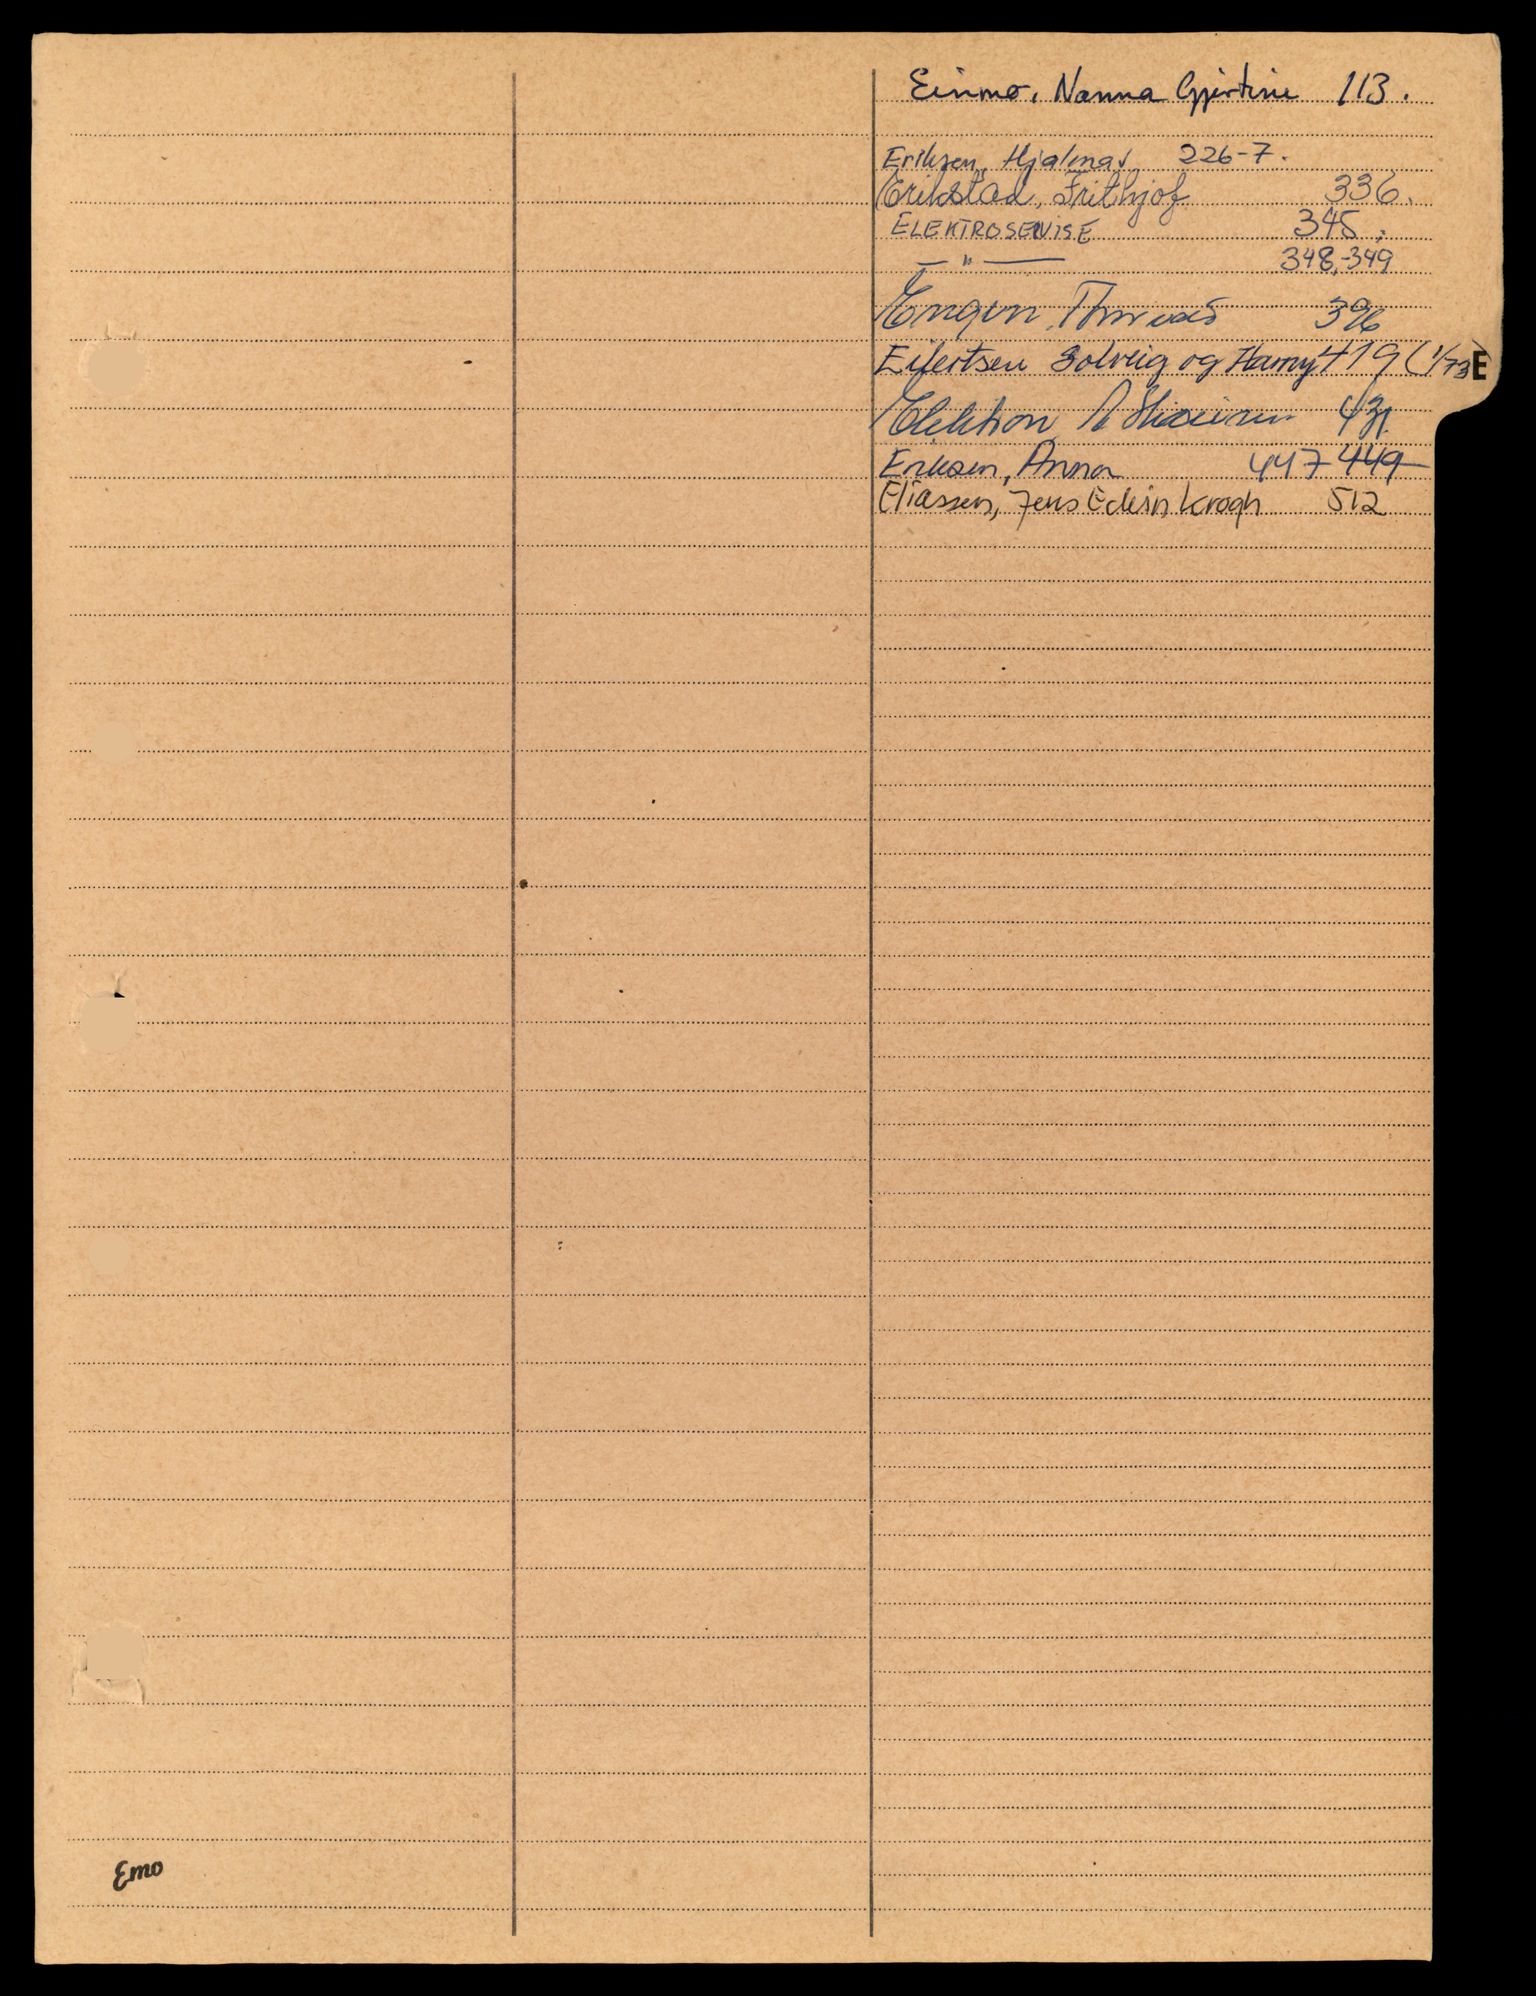 Einmo, Nanna Gjertine 113.
Eriksen, Hjalmar 226-7.
Erikstad, Frithjof 336.
ELEKTROSERVISE 345,
— " — 348,-349
396
Eilertsen Solveig og Harry 419 (1/73)
E
Elektron 431
Eriksen, Anna 447-449
Eliassen, Jens Edvin Krogh 512
Emo